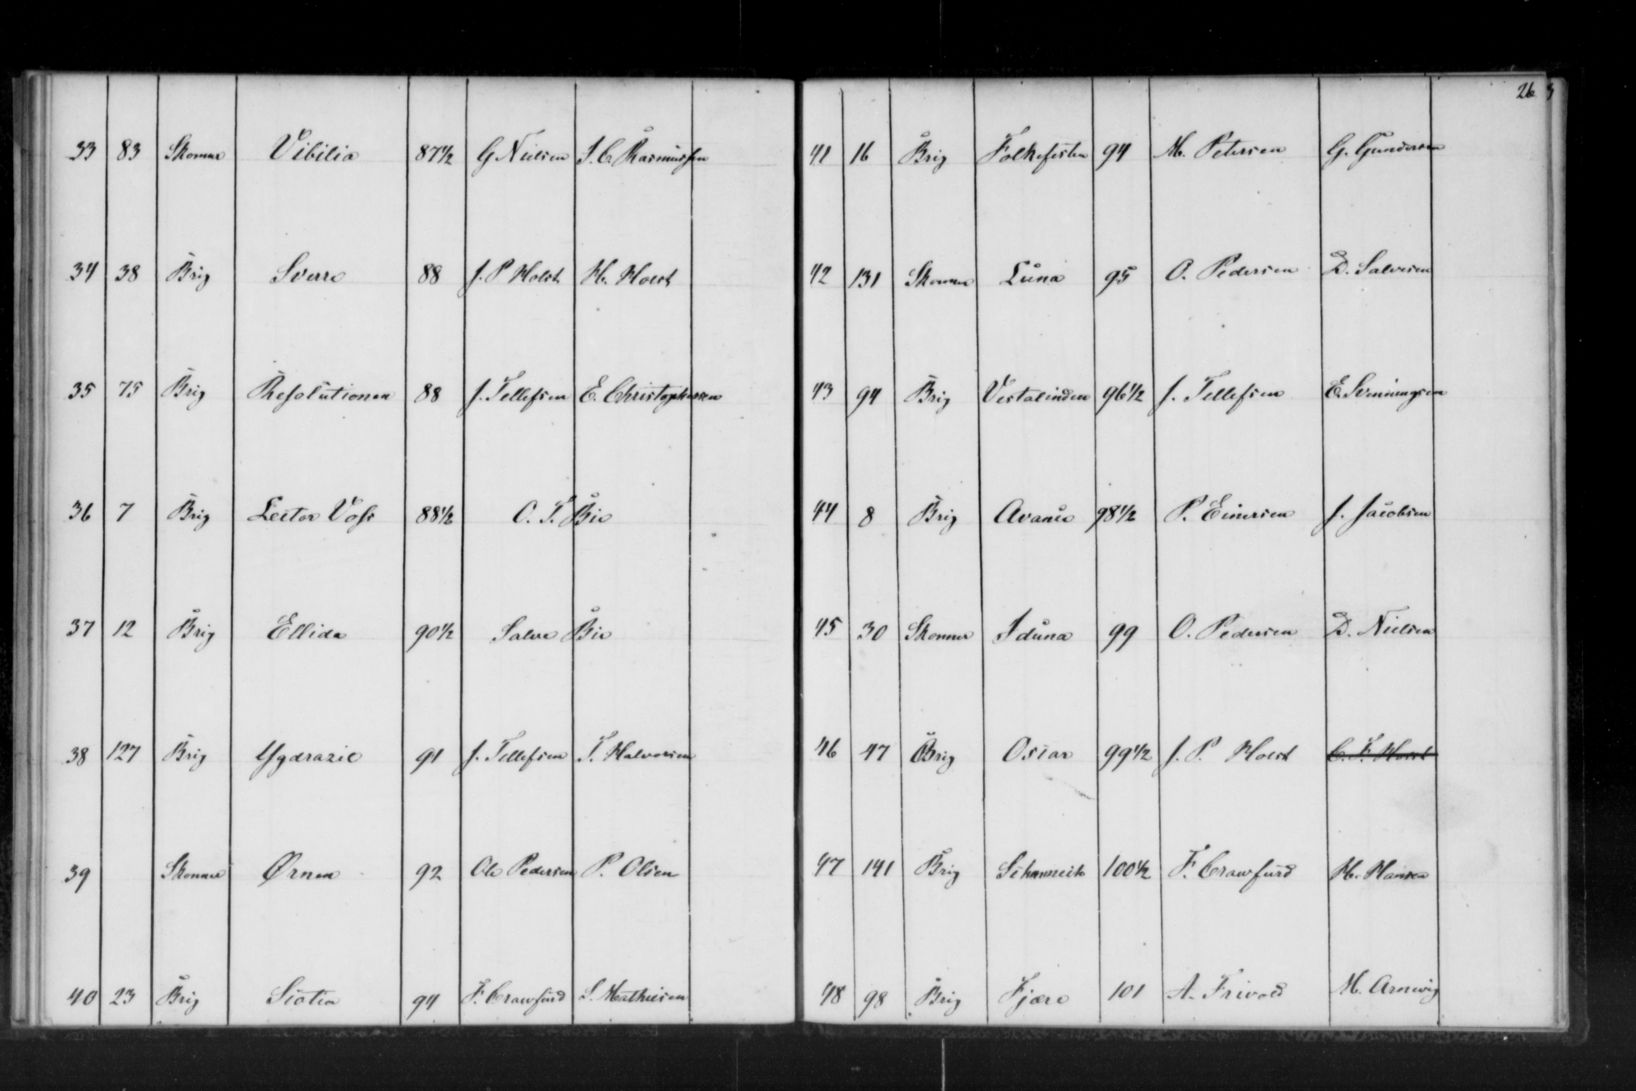 33 83 Skonner Vibilia 87½ G Nielsen S. C. Rasmussen
34 38 Brig Sverre 88 J. P Holst H. Holst
35 75 Brig Resolutionen 88 J. Tellefsen E. Christophersen
36 7 Brig Lector Voss 88½ O. T. Bie
37 12 Brig Ellida 90½ Salve Bie
38 127 Brig Ygdrazil 91 J. Tellefsen T. Halvorsen
39 Skonner Ørnen 92 Ole Pedersen P. Olsen
40 23 Brig Scotia 94 F. Crawfurd S. Mathiesen
26
41 16 Brig Folkefesten 94 M. Petersen G. Gundersen
42 131 Skonner Luna 95 O. Pedersen D. Salvesen
43 94 Brig Vestalinden 96½ J. Tellefsen E. Svenningsen
44 8 Brig 98½ P. J. Jacobsen
45 30 Skonner Iduna 99 O. Pedersen D. Nielsen
46 47 Brig Oscar 99½ J. P. Holst C. F. Holst
47 141 Brig 100½ F. Crawfurd H. Hansen
48 98 Brig Fjære 101 A. Frivold M. Arnevig